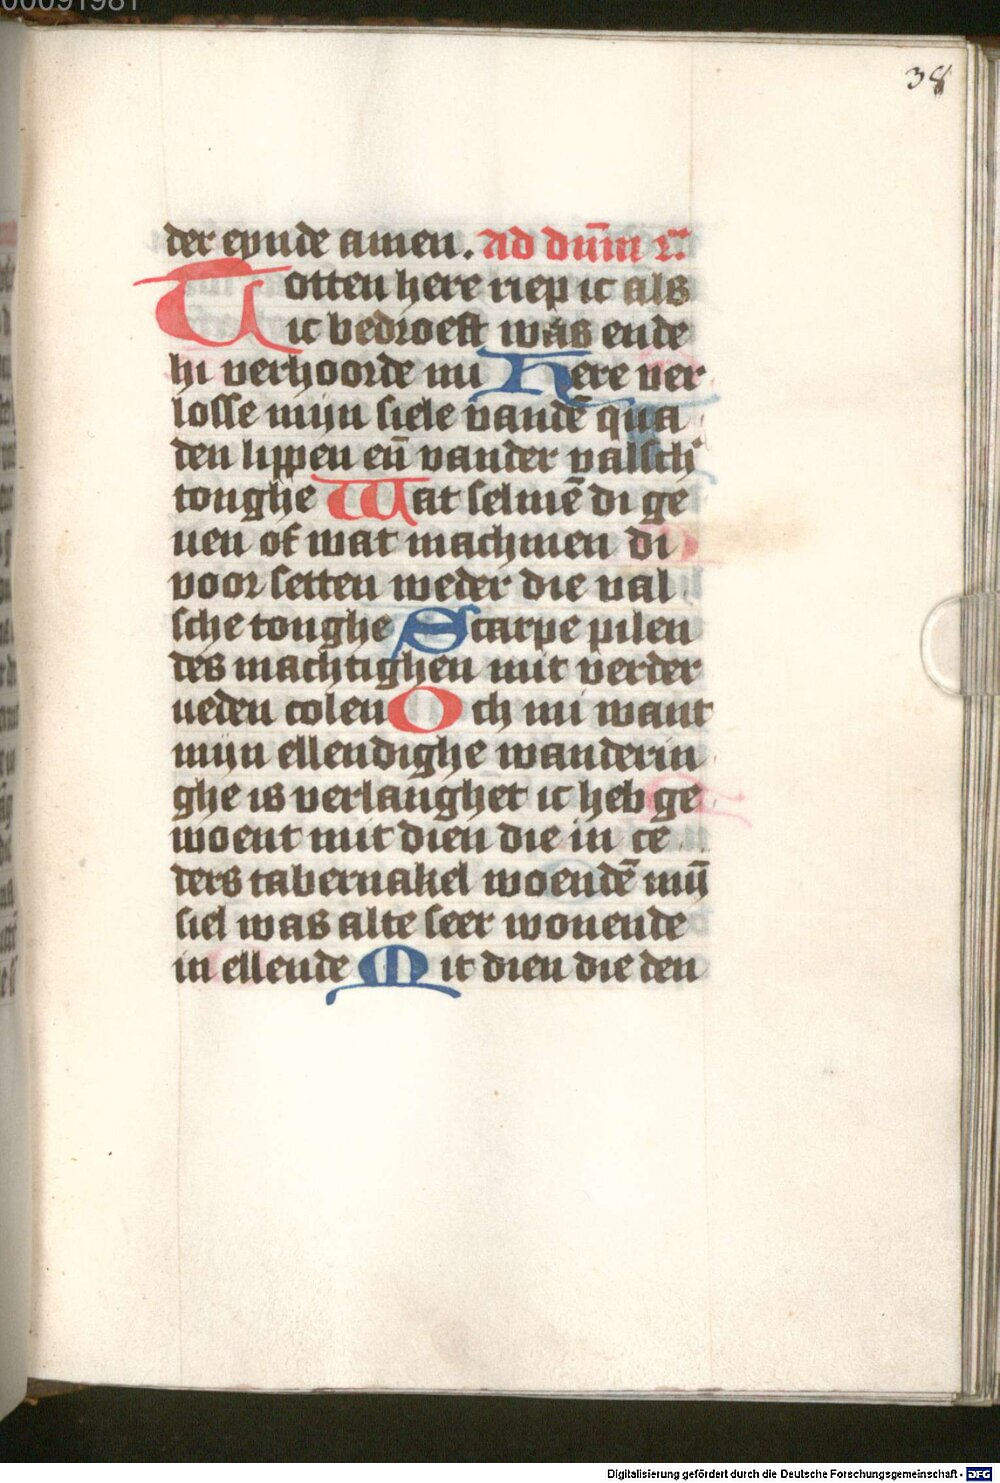 00091981
38
der eynde amen. ad dūm r̄
Totten here riep ic als
ic bedroeft was ende
hi verhoorde mi Here ver
losse mijn siele vandē qua
den lippen eñ vander valsch
tonghe Wat selmē di ge
uen of wat machmen di
voor setten weder die val
sche tonghe Scarpe pilen
des machtighen mit verder
ueden colen Och mi want
mijn ellendighe wanderin
ghe is verlanghet ic heb ge
woent mit dien die in ce
ders tabernakel woendē mij̄
siel was alte seer wonende
in ellende Mit dien die den
Digitalisierung gefördert durch die Deutsche Forschungsgemeinschaft - DFG